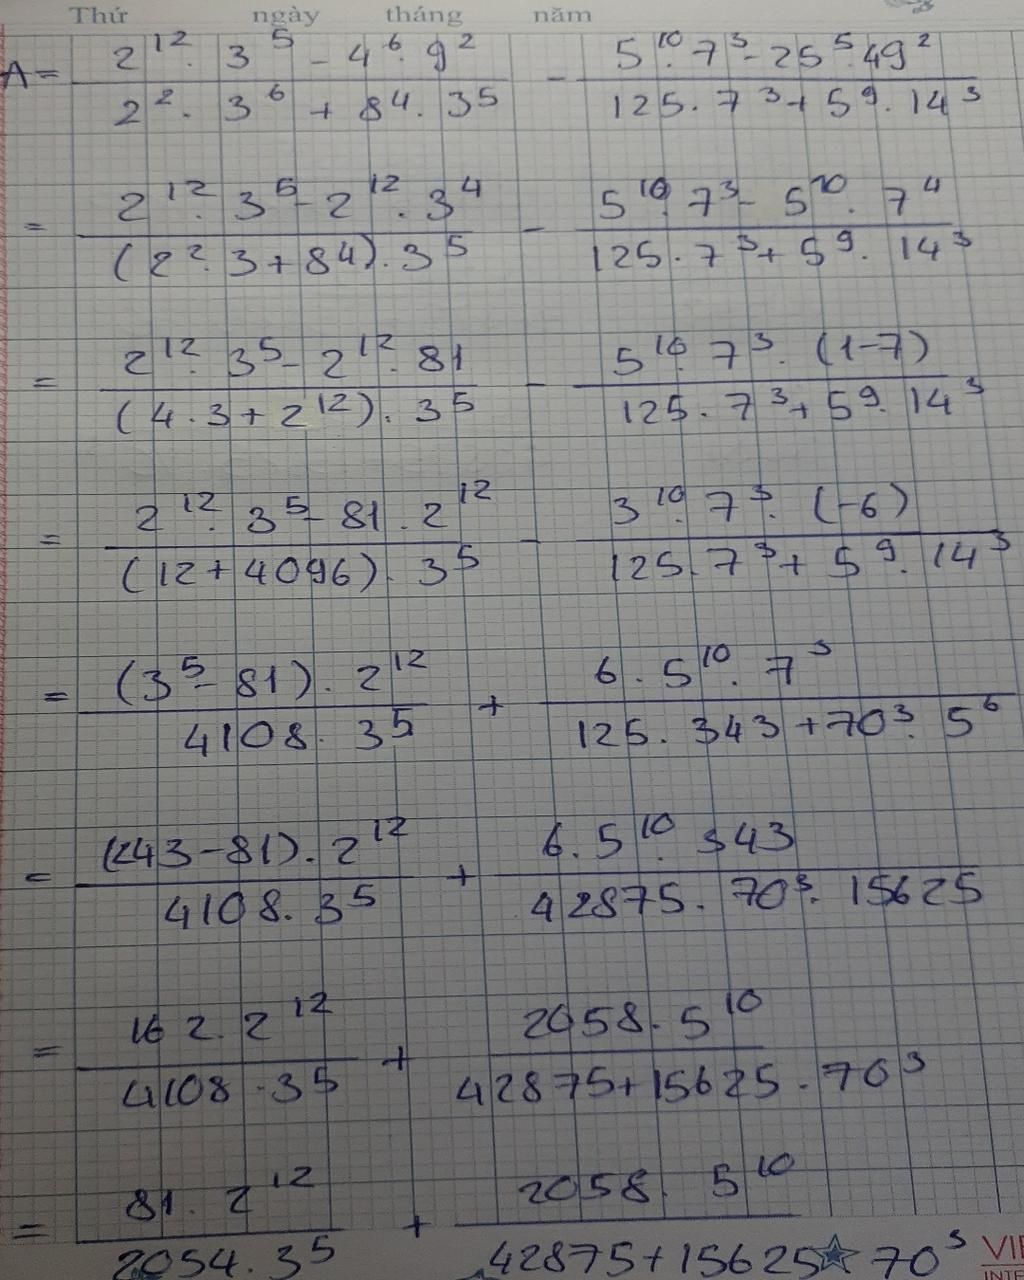 Thứ ngày tháng năm
A = (2^12 . 3^5 - 4^6 . 9^2)/(2^2 . 3^6 + 8^4 . 3^5) - (5^10 . 7^3 - 25^5 . 49^2)/(125 . 7^3 + 5^9 . 14^3)
= (2^12 . 3^5 - 2^12 . 3^4)/((2^2 . 3 + 8^4) . 3^5) - (5^10 . 7^3 - 5^10 . 7^4)/(125 . 7^3 + 5^9 . 14^3)
= (2^12 . 3^5 - 2^12 . 81)/((4 . 3 + 2^12) . 3^5) - (5^10 . 7^3 . (1-7))/(125 . 7^3 + 5^9 . 14^3)
= (2^12 . 3^5 - 81 . 2^12)/((12 + 4096) . 3^5) - (3^10 . 7^3 . (-6))/(125 . 7^3 + 5^9 . 14^3)
= ((3^5 - 81) . 2^12)/(4108 . 3^5) + (6 . 5^10 . 7^3)/(125 . 343 + 70^3 . 5^6)
= ((243 - 81) . 2^12)/(4108 . 3^5) + (6 . 5^10 . 343)/(42875 . 70^3 . 15625)
= (162 . 2^12)/(4108 . 3^5) + (2058 . 5^10)/(42875 + 15625 . 70^3)
= (81 . 2^12)/(2054 . 3^5) + (2058 . 5^10)/(42875 + 15625 70^3)